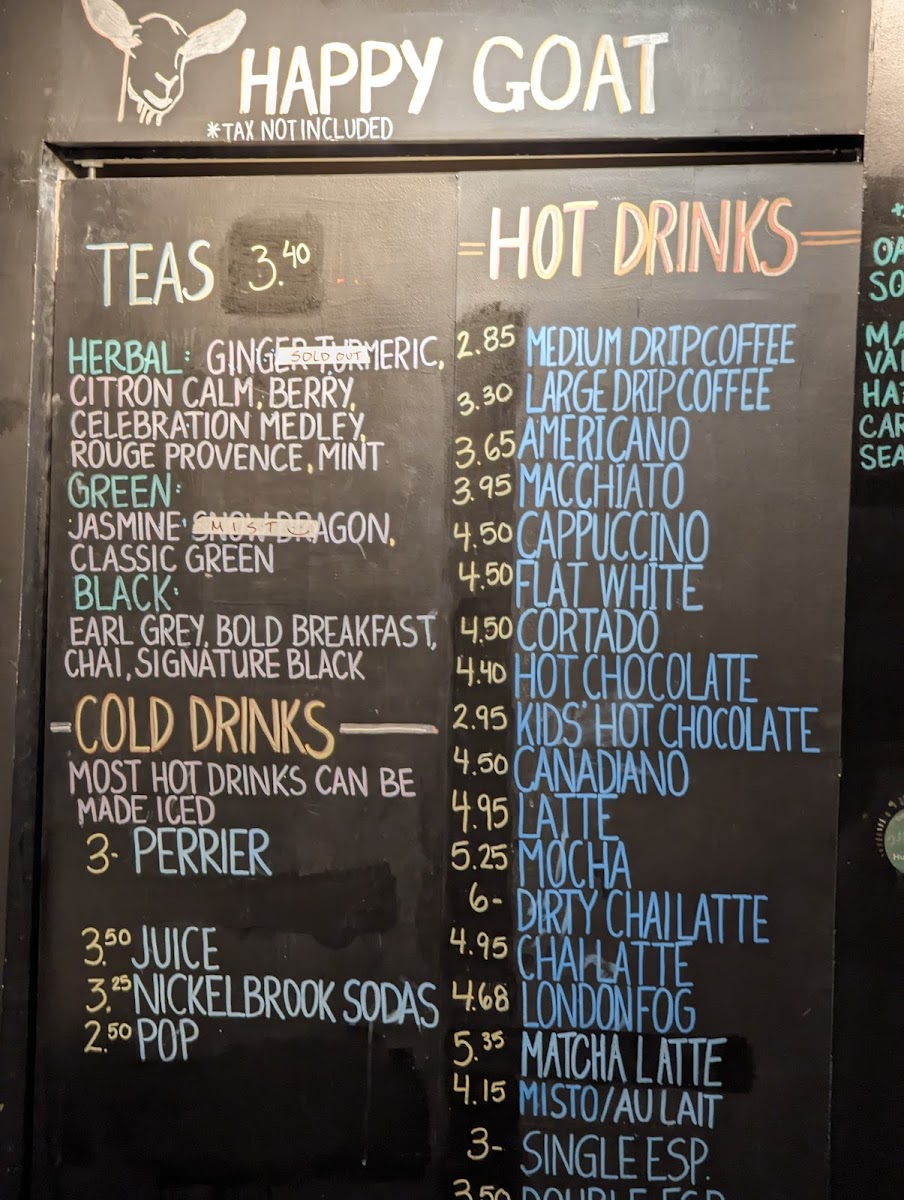 HAPPY GOAT
*TAX NOT INCLUDED
TEAS 3.40
HERBAL: GINGER TURMERIC,
SOLD OUT
CITRON CALM, BERRY,
CELEBRATION MEDLEY,
ROUGE PROVENCE, MINT
GREEN:
JASMINE, SNOW DRAGON,
MIST
CLASSIC GREEN
BLACK:
EARL GREY, BOLD BREAKFAST,
CHAI, SIGNATURE BLACK
COLD DRINKS
MOST HOT DRINKS CAN BE
MADE ICED
3- PERRIER
3.50 JUICE
3.25 NICKELBROOK SODAS
2.50 POP
HOT DRINKS
2.85 MEDIUM DRIP COFFEE
3.30 LARGE DRIP COFFEE
3.65 AMERICANO
3.95 MACCHIATO
4.50 CAPPUCCINO
4.50 FLAT WHITE
4.50 CORTADO
4.40 HOT CHOCOLATE
2.95 KIDS' HOT CHOCOLATE
4.50 CANADIANO
4.95 LATTE
5.25 MOCHA
6- DIRTY CHAI LATTE
4.95 CHAI LATTE
4.68 LONDON FOG
5.35 MATCHA LATTE
4.15 MISTO/AU LAIT
3- SINGLE ESP.
3.50 DOUBLE ESP
OA
SO
MA
VAN
HAZ
CAR
SEA